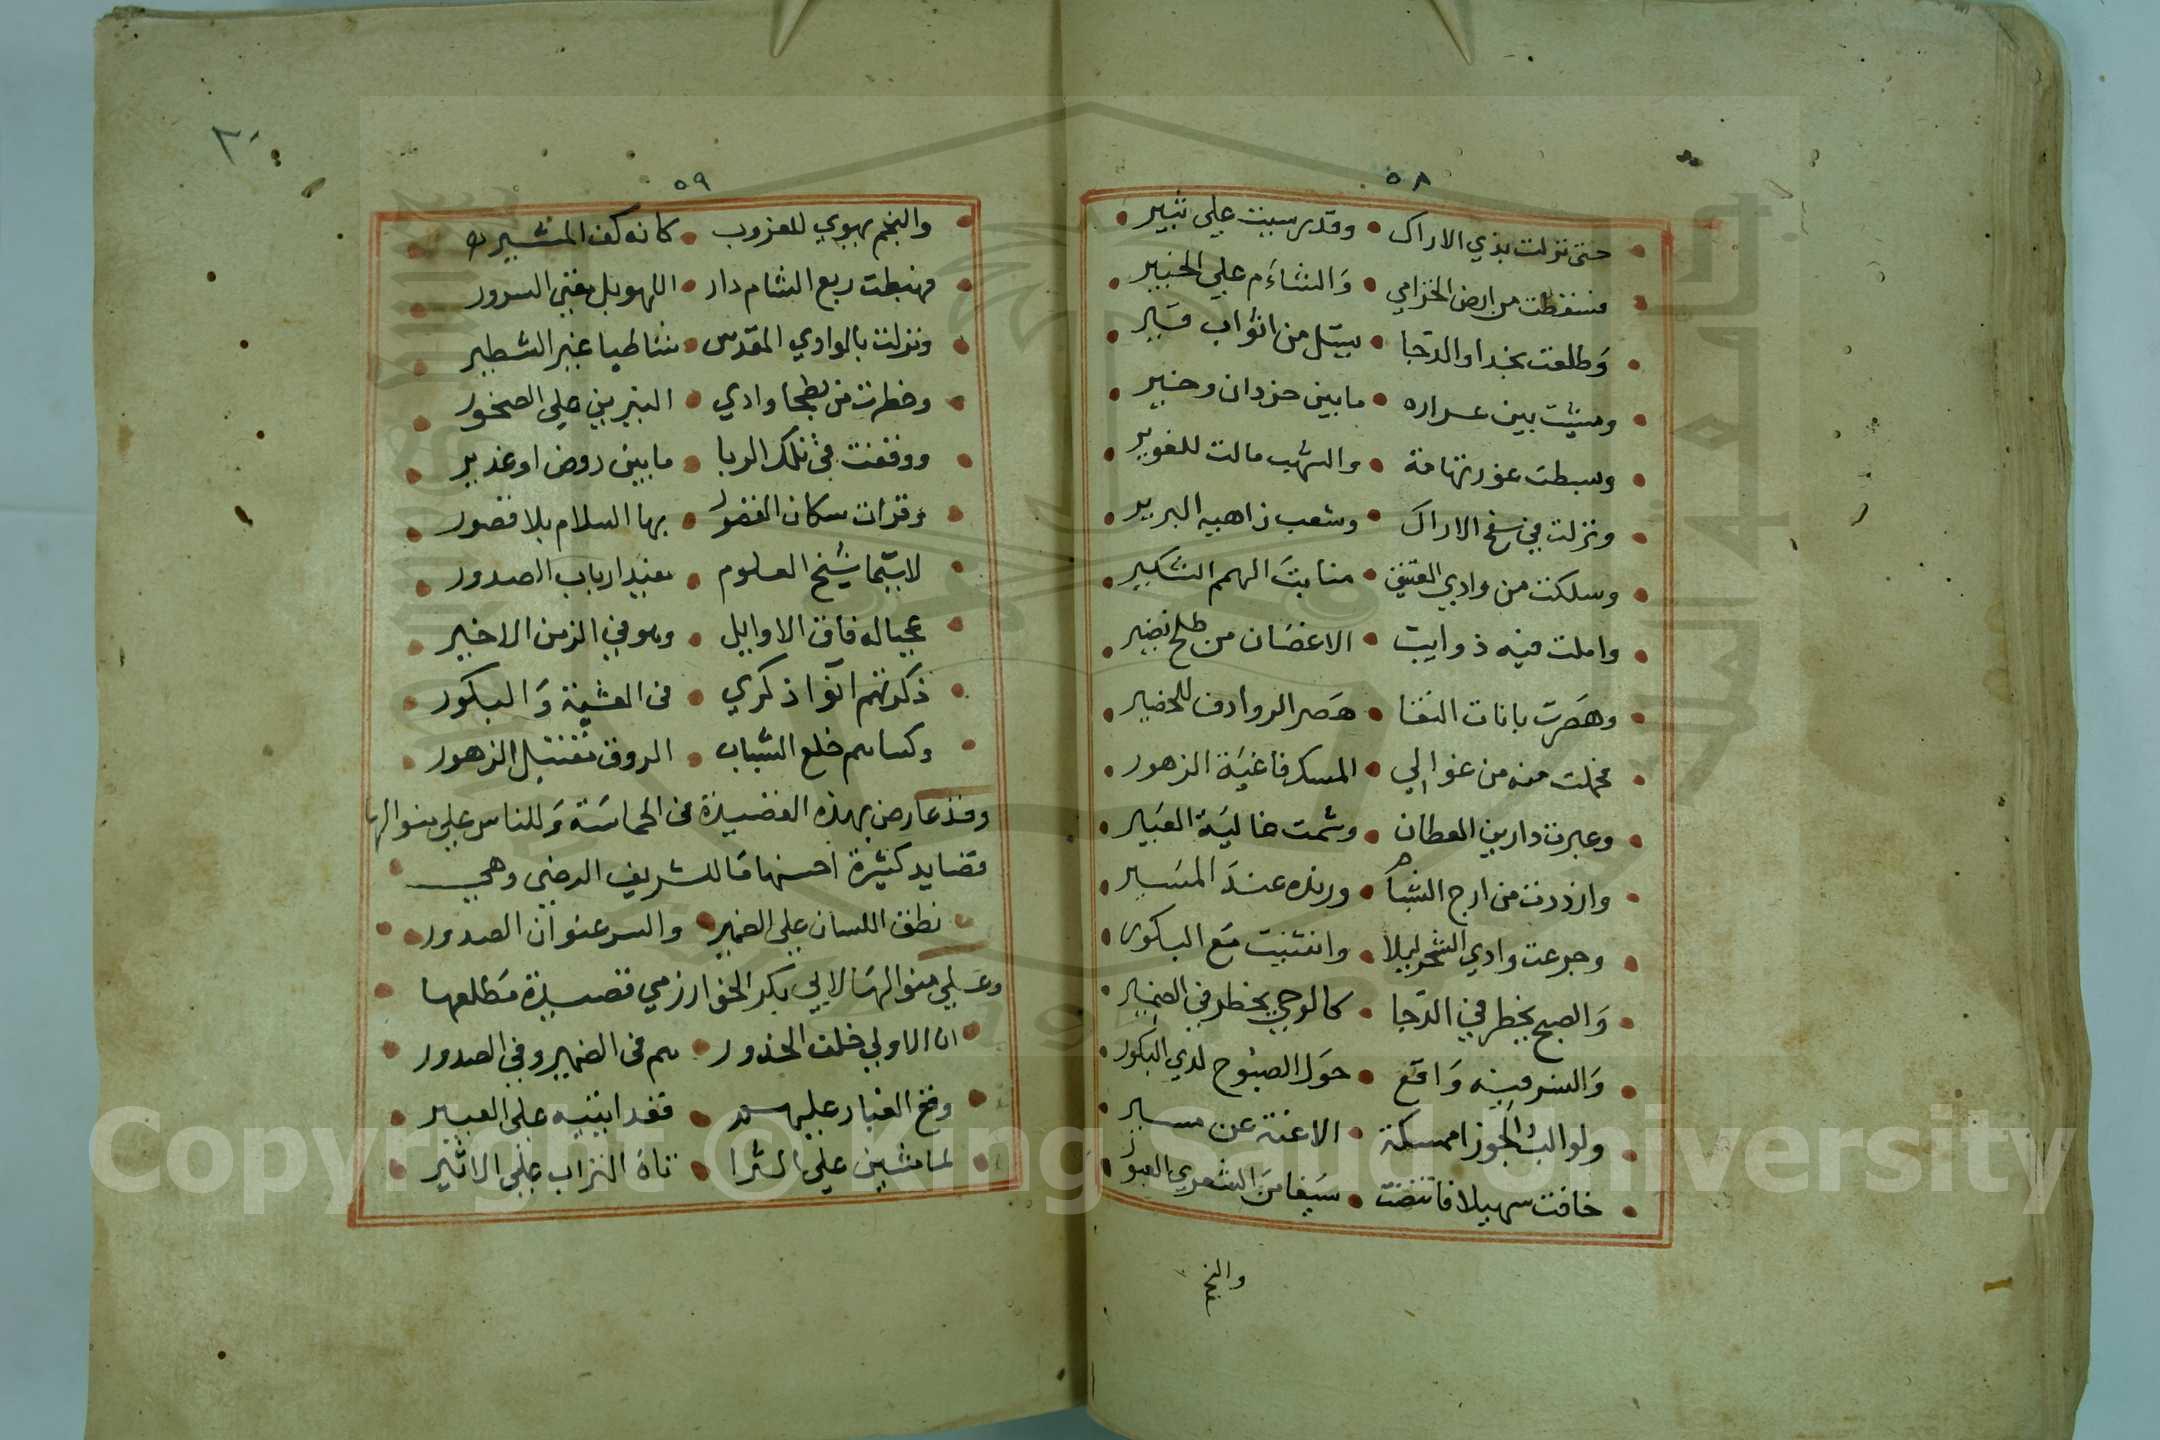 ٥٨
حتى نزلت بذي الاراك وقد رسبت علي ثبير
فسقطت من ارض الخزامي وَالشاءَم علي الخبير
وَطلعت نجدا والدّجا يبتل من اثواب قير
وميثت بين عراره مابين حزدان وخبير
وسبطت غور تهامة والشهب مالت للغوير
ونزلت في سفح الاراك وشعب زاهيه البرير
وسلكت من وادي العقيق منابت الهمم الشكير
واملت فيه ذوايب الاغصان من طلح نضير
وهَصَرت بانات النقا هَصر الروادف للخصير
فحملت منه من غوالي المسك فاغيَة الزهور
وعبرت دارين العطان وشمت خاليَة العَبير
وازددت من ارج الشبا ورنده عندَ المسَير
وجرعت وادي الشحر ليلا وانثنيت مَع البكور
وَالصبح يخطر في الدّجا كالوحي يخطر في الضمير
وَالنسر فيه وَاقع حوَل الصبوح لدي البكور
ولوا لب الجوزا ممسكة الاعنة عن مسير
خافت سهيلا فانتضت سَيفا منَ الشعري العبور
والنجم
٥٩
والنجم يهوي للغروب كانه كف المشير
فهبطت ربع الشام دار اللهو بل مغني السرور
ونزلت بالوادي المقدس شاطيا غير الشطير
وخطرت من بطحا وادي النيربين علي الصخور
ووقفت في تلك الربا مابين روض او غدير
وقرات سكان القصور بها السلام بلا قصور
لاسيّما شيْخ العلوم مفيد ارباب الصدور
عجبا له فاق الاوايل وهو في الزمن الاخير
ذكرتهم انوا ذكري في العشية وَالبكور
وكساهم خلع الشباب الروق مقتبل الزهور
وقد عارض بهذه القصيدة في الحماسَة وَللناس علي منوالها
قصايد كثيرة احسنها مَا للشريف الرضي وهي
نطق اللسان علي الضمير والسر عنوان الصدور
وعلي منوالهَا لابي بكر الخوارزمي قصيدة مَطلعها
ان الاولي خلف الخدور هم في الضمير وفي الصدور
وضخ الغبار عليهم فغدا يتيه علي العبير
لما مشين علي الثرا تاهَ التراب علي الاثير
Copyright © King Saud University